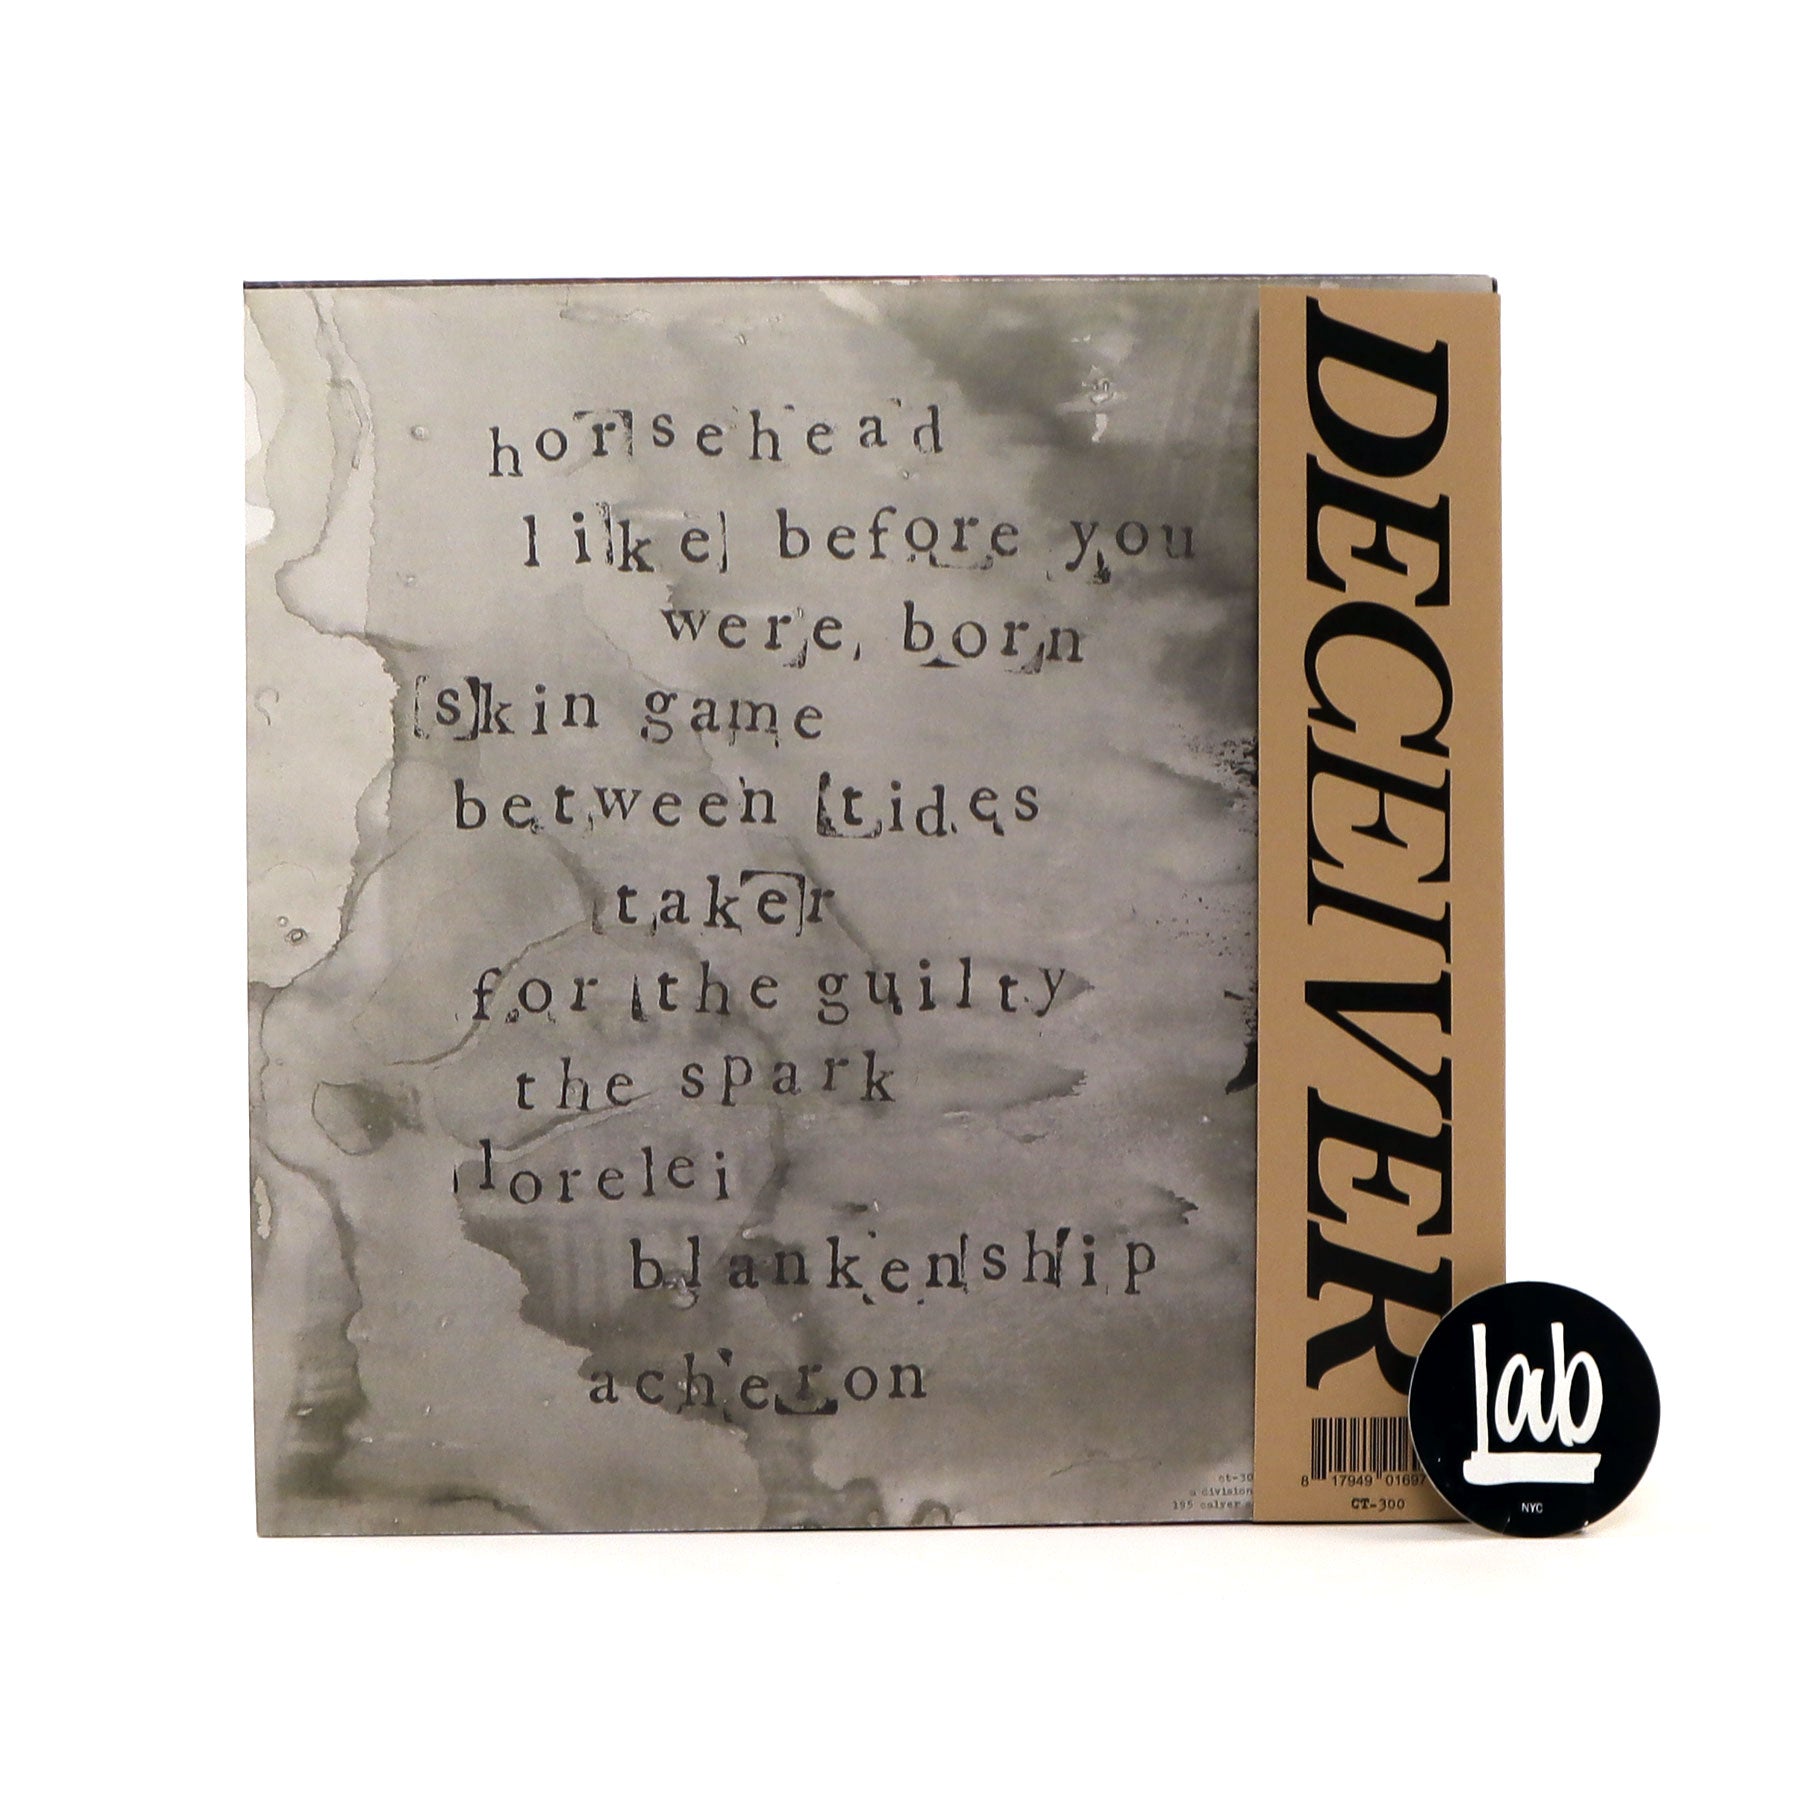 horsehead
like before you
were born
skin game
between tides
taker
for the guilty
the spark
lorelei
blankenship
acheron
ct-30
a division
195 calyer
DECEIVER
8 17949 01697
CT-300
Lab
NYC